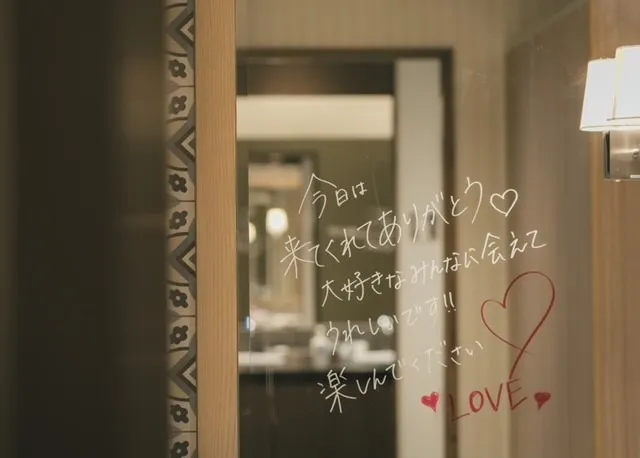 今日は
来てくれてありがとう♡
大好きなみんなに会えて
うれしいです!!
楽しんでください
♥LOVE♥